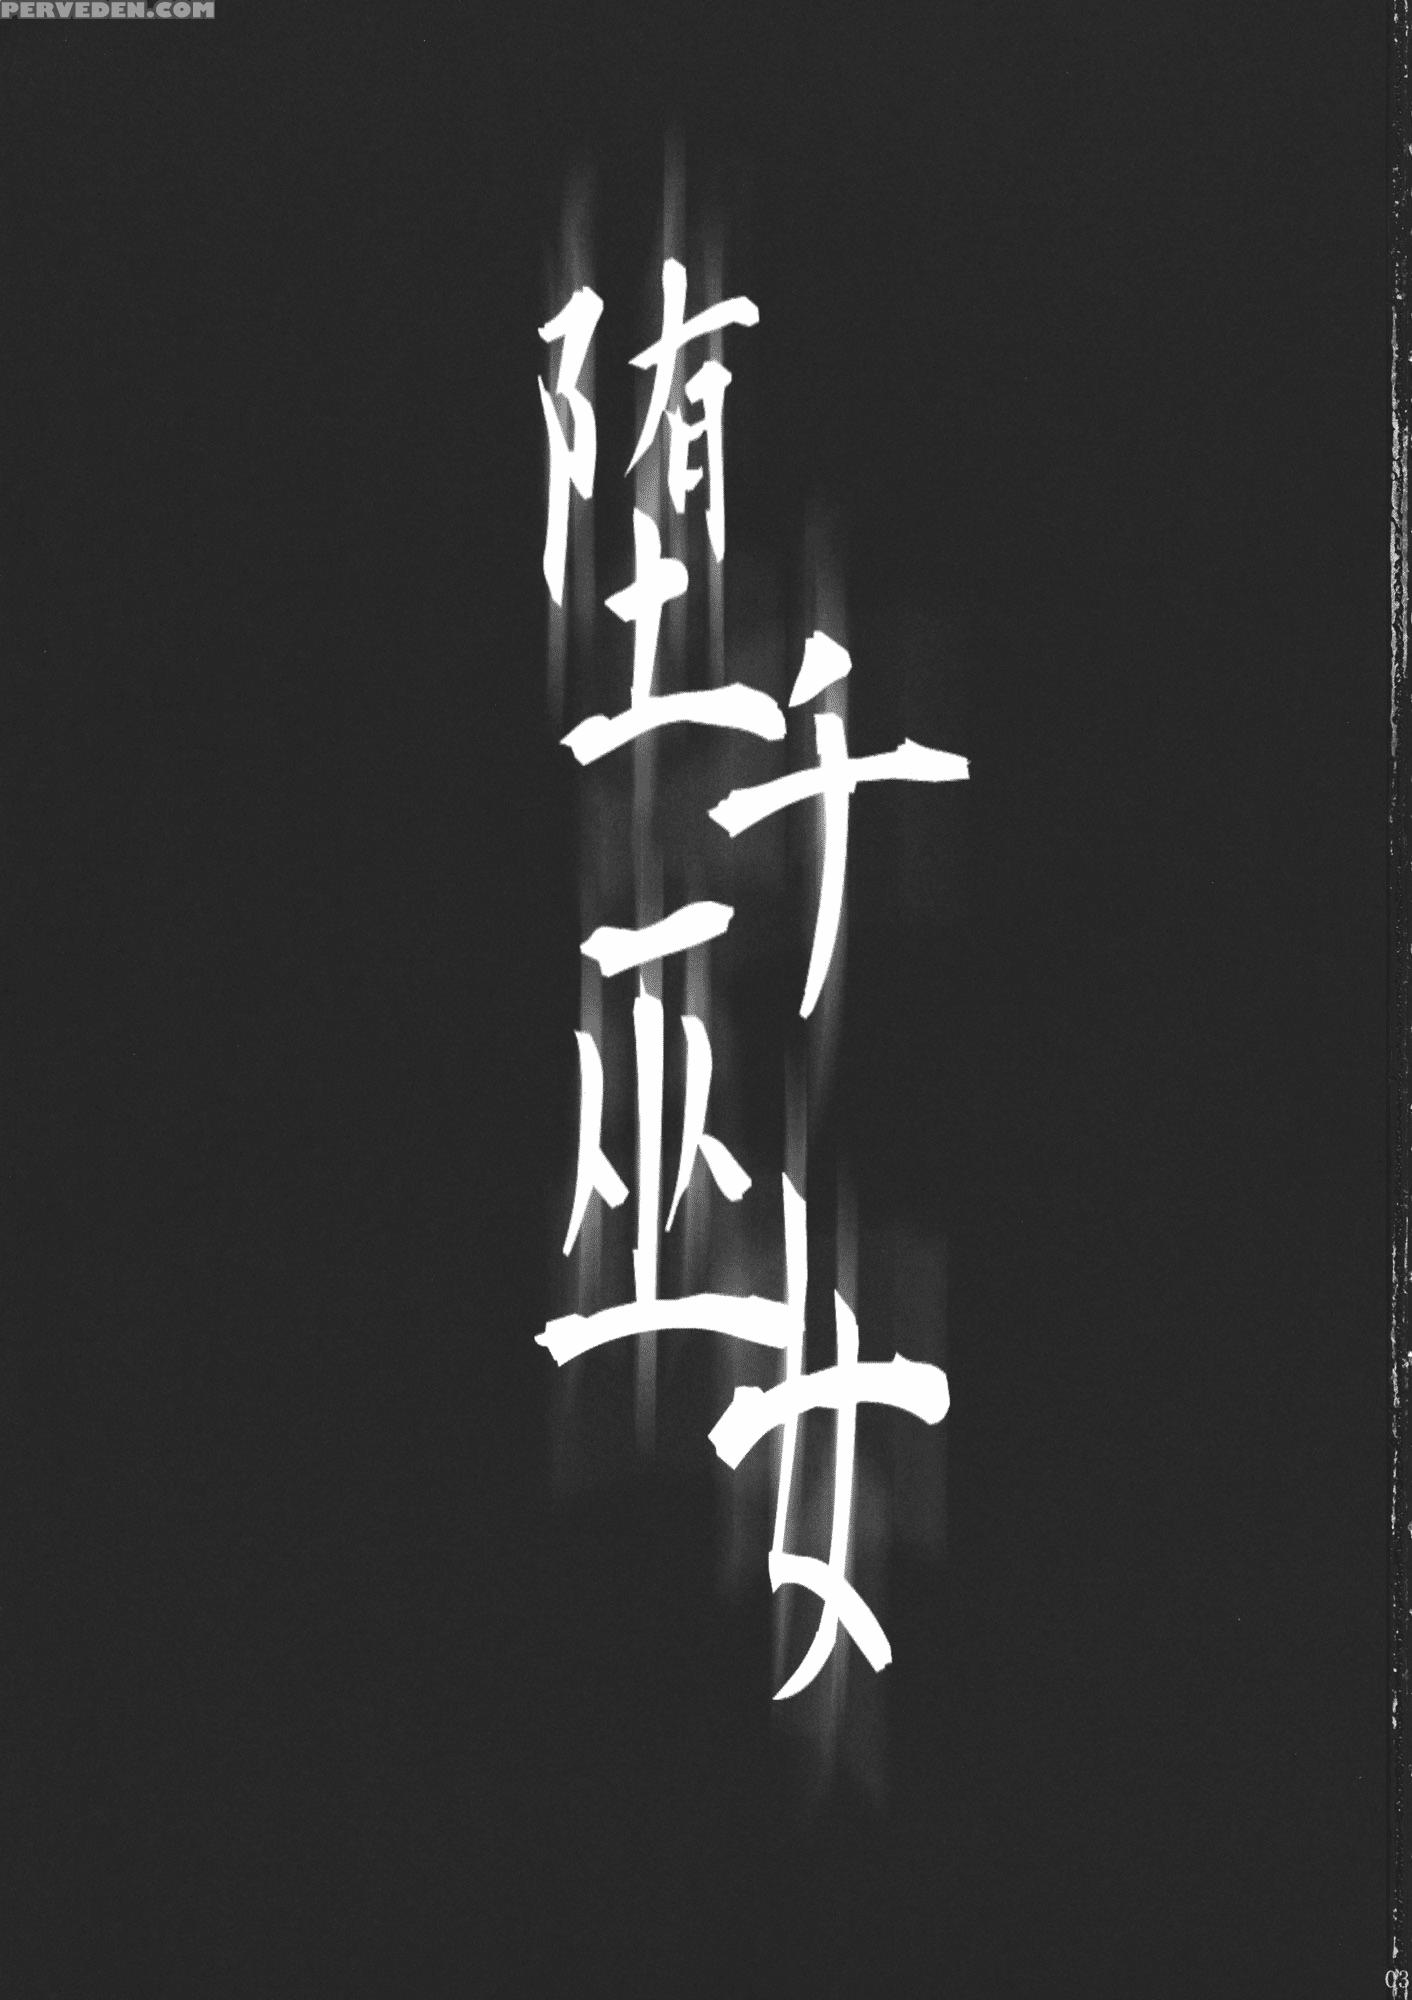 PERVEDEN.COM
堕千巫女
03